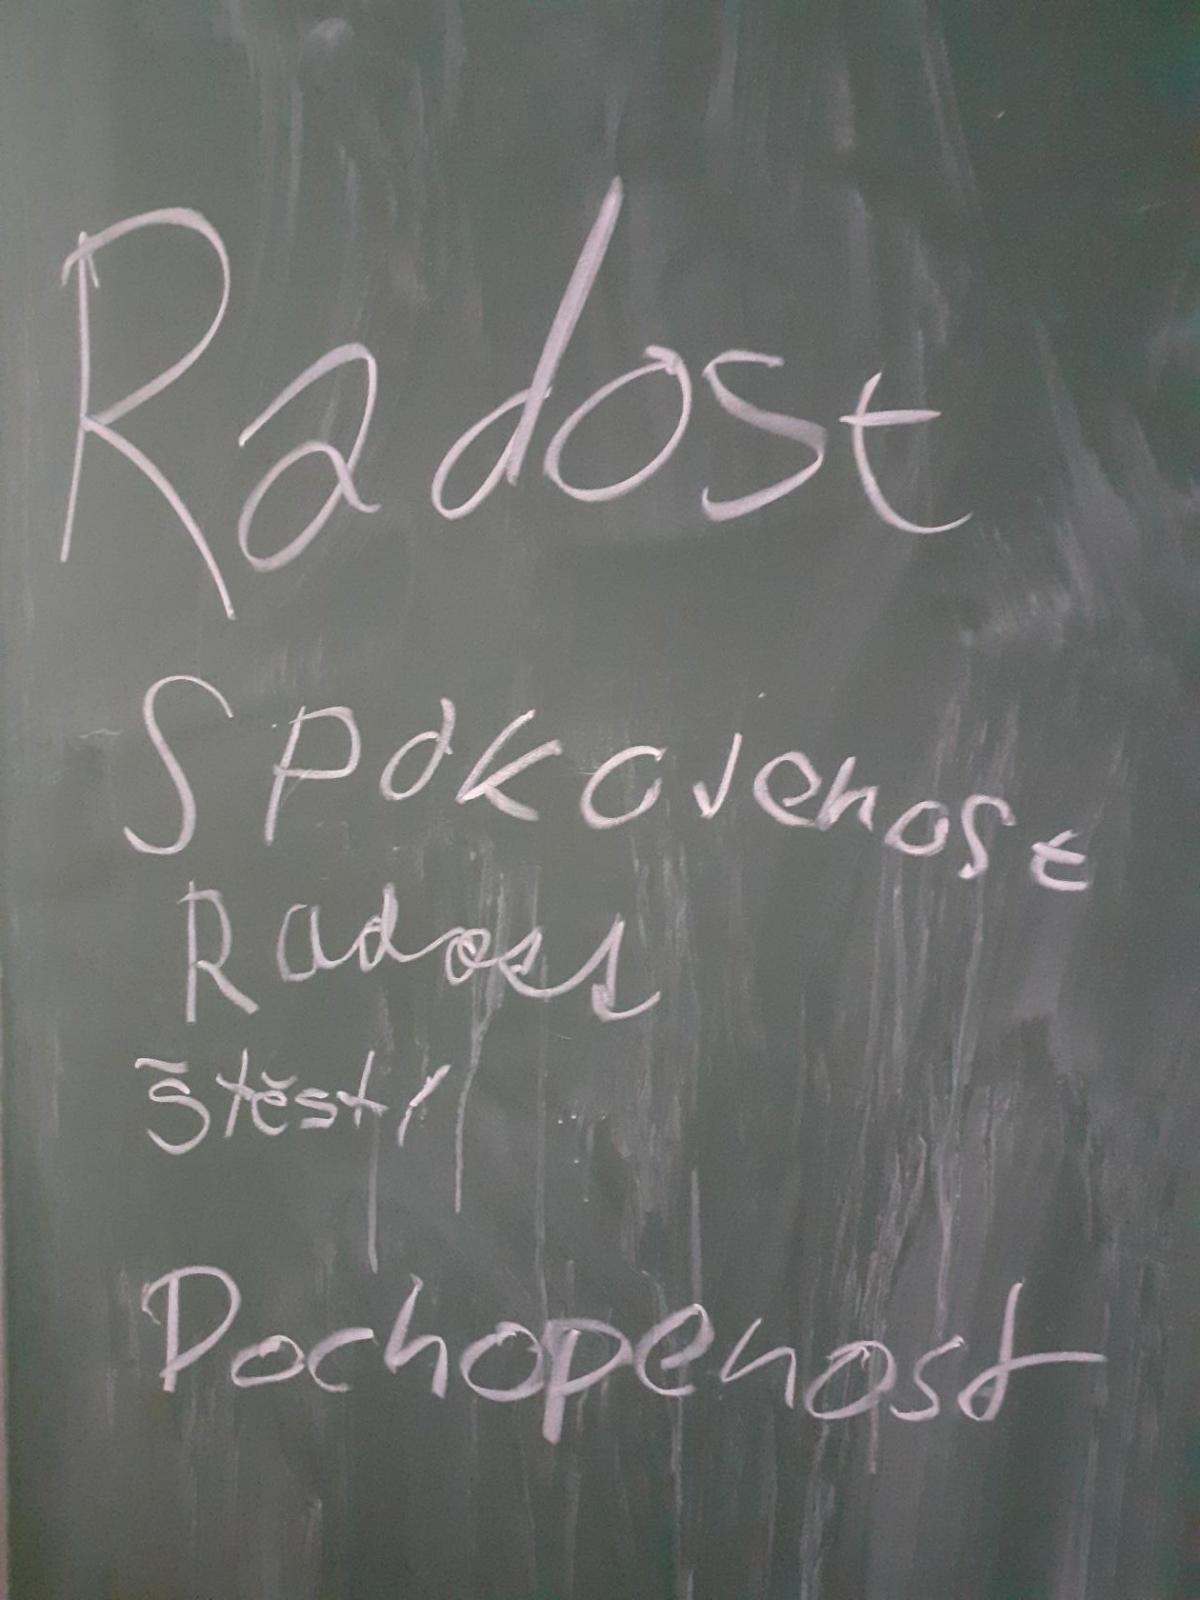 Radost
Spokojenost
Radost
Štěstí
Pochopenost